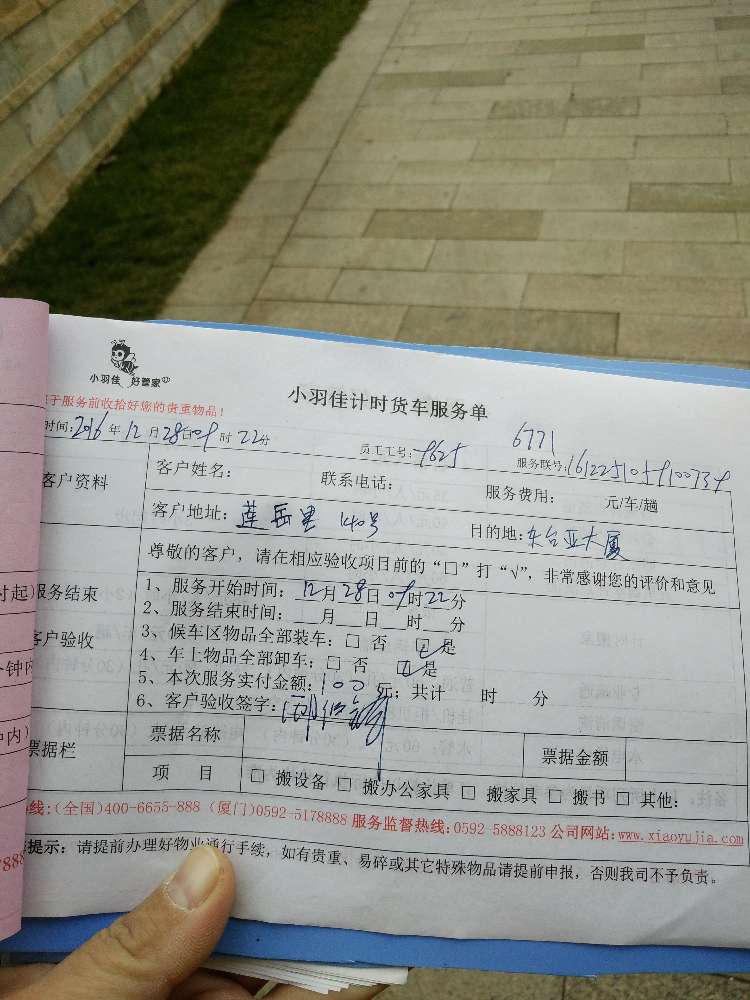 小羽佳 好管家
小羽佳计时货车服务单
于服务前收拾好您的贵重物品!
时间:2016年12月28日09时22分 员工工号: 9625 服务联号:
6771
客户资料 客户姓名: 联系电话: 服务费用: 元/车/趟
客户地址: 莲岳里 140号 目的地: 东台亚大厦
尊敬的客户，请在相应验收项目前的“□”打“√”，非常感谢您的评价和意见
付起)
服务结束
客户验收
钟内
钟内)
1、服务开始时间: 12月28日09时22分
2、服务结束时间: __月__日__时__分
3、候车区物品全部装车: □ 否 ☑ 是
4、车上物品全部卸车: □ 否 ☑ 是
5、本次服务实付金额: 100元; 共计 时 分
6、客户验收签字:
票据栏 票据名称 票据金额
项 目 □ 搬设备 □ 搬办公家具 □ 搬家具 □ 搬书 □ 其他:
线:(全国)400-6655-888 (厦门)0592-5178888 服务监督热线:0592-5888123 公司网站:www.xiaoyujia.com
提示: 请提前办理好物业通行手续，如有贵重、易碎或其它特殊物品请提前申报，否则我司不予负责。